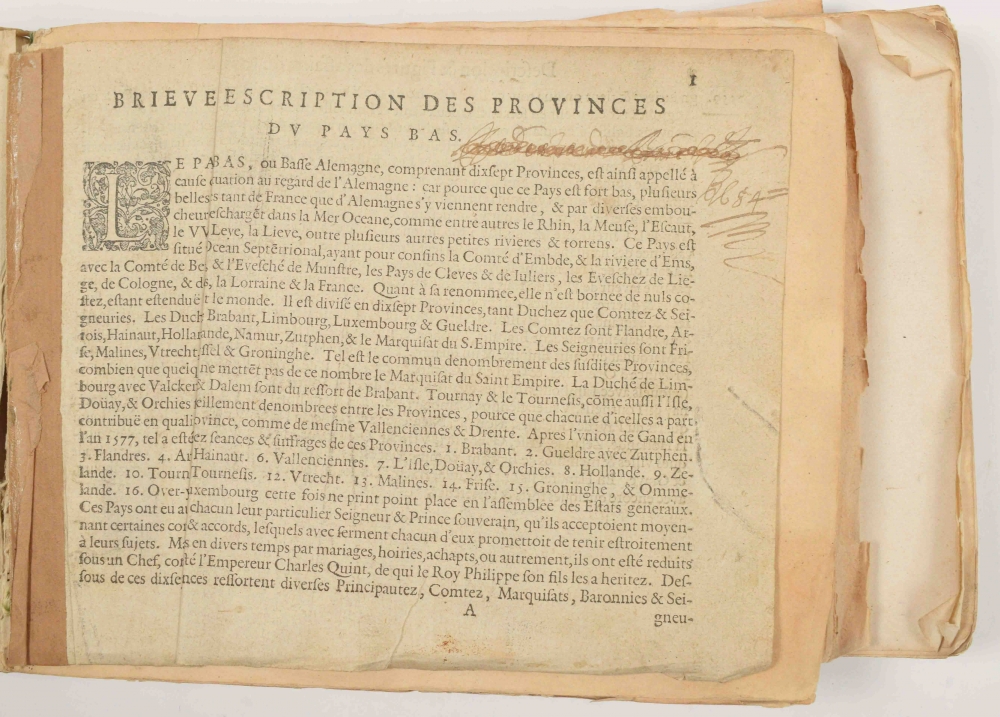 1
BRIEVE ESCRIPTION DES PROVINCES
DV PAYS BAS.
LE PA BAS, ou Basse Alemagne, comprenant dixsept Provinces, est ainsi appellé à
cause uation au regard de l'Alemagne : car pource que ce Pays est fort bas, plusieurs
belles s tant de France que d'Alemagne s'y viennent rendre, & par diverses embou-
cheures chargēt dans la Mer Oceane, comme entre autres le Rhin, la Meuse, l'Escaut,
le VV Leye, la Lieve, outre plusieurs autres petites rivieres & torrens. Ce Pays est
situé Ocean Septētrional, ayant pour confins la Comté d'Embde, & la riviere d'Ems,
avec la Comté de Be, & l'Evesché de Munstre, les Pays de Cleves & de Iuliers, les Eveschez de Lie-
ge, de Cologne, & de, la Lorraine & la France. Quant à sa renommee, elle n'est bornee de nuls co-
stez, estant estenduë t le monde. Il est divisé en dixsept Provinces, tant Duchez que Comtez & Sei-
gneuries. Les Duch Brabant, Limbourg, Luxembourg & Gueldre. Les Comtez sont Flandre, Ar-
tois, Hainaut, Hollande, Namur, Zutphen, & le Marquisat du S. Empire. Les Seigneuries sont Fri-
se, Malines, Vtrecht, ssel & Groninghe. Tel est le commun denombrement des susdites Provinces,
combien que quelqne mettēt pas de ce nombre le Marquisat du Saint Empire. La Duché de Lim-
bourg avec Valcker & Dalem sont du ressort de Brabant. Tournay & le Tournesis, cōme aussi l'Isle,
Doüay, & Orchies eillement denombrees entre les Provinces, pource que chacune d'icelles a part
contribuë en qualiprovince, comme de mesme Vallenciennes & Drente. Apres l'vnion de Gand en
l'an 1577, tel a esté ez seances & suffrages de ces Provinces. 1. Brabant. 2. Gueldre avec Zutphen.
3. Flandres. 4. Ar Hainaut. 6. Vallenciennes. 7. L'Isle, Doüay, & Orchies. 8. Hollande. 9. Ze-
lande. 10. Tourn Tournesis. 12. Vtrecht. 13. Malines. 14. Frise. 15. Groninghe, & Omme-
lande. 16. Over-uxembourg cette fois ne print point place en l'assemblee des Estats generaux.
Ces Pays ont eu au chacun leur particulier Seigneur & Prince souverain, qu'ils acceptoient moyen-
nant certaines con & accords, lesquels avec serment chacun d'eux promettoit de tenir estroitement
à leurs sujets. Ms en divers temps par mariages, hoiries, achapts, ou autrement, ils ont esté reduits
sous un Chef, co té l'Empereur Charles Quint, de qui le Roy Philippe son fils les a heritez. Des-
sous de ces dixsences ressortent diverses Principautez, Comtez, Marquisats, Baronnies & Sei-
A
gneu-